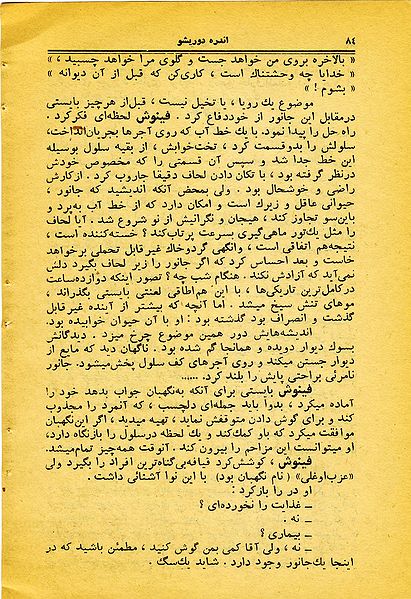 ۸٤
اندره دوریشو
« بالاخره بروی من خواهد جست و گلوی مرا خواهد چسبید ، »
« خدایا چه وحشتناك است ، کاری‌کن که قبل از آن دیوانه »
« بشوم ! »
موضوع یك رویا ، یا تخیل نیست ، قبل‌از هرچیز بایستی
درمقابل این جانور از خوددفاع کرد . فینوش لحظه‌ای فکرکرد .
راه حل را پیدا نمود. با یك خط آب که روی آجرها بجریان‌انداخت،
سلولش را بدوقسمت کرد ، تخت‌خوابش ، از بقیه سلول بوسیله
این خط جدا شد و سپس آن قسمتی را که مخصوص خودش
درنظر گرفته بود ، با تکان دادن لحاف دقیقا جاروب کرد . ازکارش
راضی و خوشحال بود . ولی بمحض آنکه اندیشید که جانور ،
حیوانی عاقل و زیرك است و امکان دارد که از خط آب به‌پرد و
باین‌سو تجاوز کند ، هیجان و نگرانیش از نو شروع شد . آیا لحاف
را مثل یك‌تور ماهی‌گیری بسرعت پرتاب‌کند ؟ خسته‌کننده است ،
نتیجه‌هم اتفاقی است ، وانگهی گردوخاك غیرقابل تحملی برخواهد
خاست و بعد احساس کرد که اگر جانور را زیر لحاف بگیرد دلش
نمی‌آید که آزادش نکند . هنگام شب چه ؟ تصور اینکه دوازده‌ساعت
درکامل‌ترین تاریکی‌ها ، با این هم‌اطاقی لعنتی بایستی بگذراند ،
موهای تنش سیخ میشد . اما آنچه که بیشتر از آینده غیرقابل
گذشت و انصراف بود گذشته بود : او با آن حیوان خوابیده بود.
اندیشه‌هایش دور همین موضوع چرخ میزد . دیدگانش
بسوك دیوار دویده و همانجا گم شده بود . ناگهان دید که مایع از
دیوار جستن میکند و روی آجرهای کف سلول پخش‌میشود. جانور
نامرئی براحتی پایش را بلند کرد. ......
فینوش بایستی برای آنکه به‌نگهبان جواب بدهد خود را
آماده میکرد ، بدوا باید جمله‌ای دلچسب ، که آنمرد را مجذوب
کند و برای گوش دادن متوقفش نماید ، تهیه میدید ، اگر این‌نگهبان
موافقت میکرد که باو کمك‌کند و یك لحظه درسلول را بازنگاه دارد،
او میتوانست این مزاحم را بیرون کند . آنوقت همه‌چیز تمام‌میشد.
فینوش ، کوشش‌کرد قیافه‌بی‌گناه‌ترین افراد را بگیرد ولی
«عزب‌اوغلی» ( نام نگهبان بود) با این نوا آشنائی داشت .
او در را بازکرد :
ــ غذایت را نخورده‌ای ؟
ــ نه .
ــ بیماری ؟
ــ نه ، ولی آقا کمی بمن گوش کنید ، مطمئن باشید که در
اینجا یك‌جانور وجود دارد . شاید یك‌سگ .